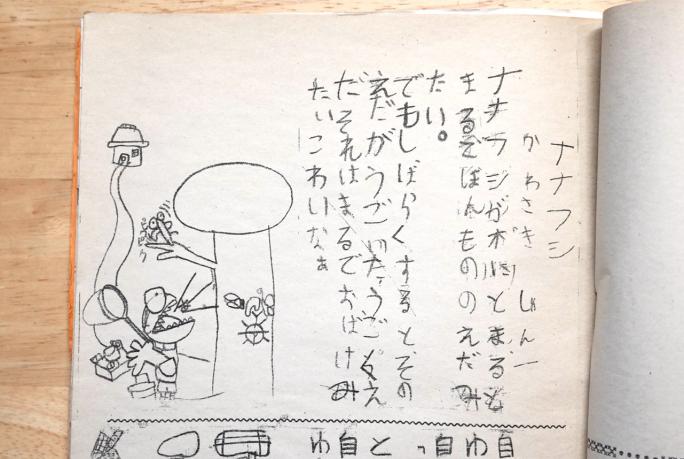 ナナフシ
かわさき しゅん一
ナナフシが木にとまると
まるでほんもののえだみ
たい。
でもしばらくするとその
えだがうごいたうごくえ
だそれはまるでおばけみ
たいこわいなぁ